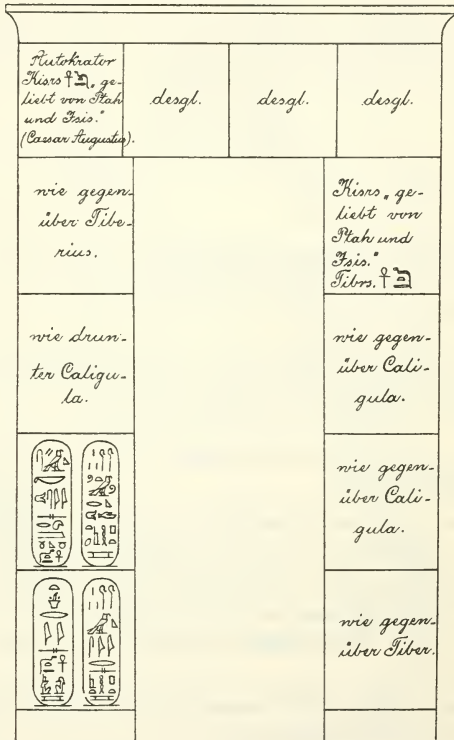 Autokrator
Kisrs „ge-
liebt von Ptah
und Isis."
(Caesar Augustus).
desgl.
desgl.
desgl.
wie gegen-
über Tibe-
rius.
Kisrs „ge-
liebt von
Ptah und
Isis."
Tibrs.
wie drun-
ter Caligu-
la.
wie gegen-
über Cali-
gula.
wie gegen-
über Cali-
gula.
wie gegen-
über Tiber.